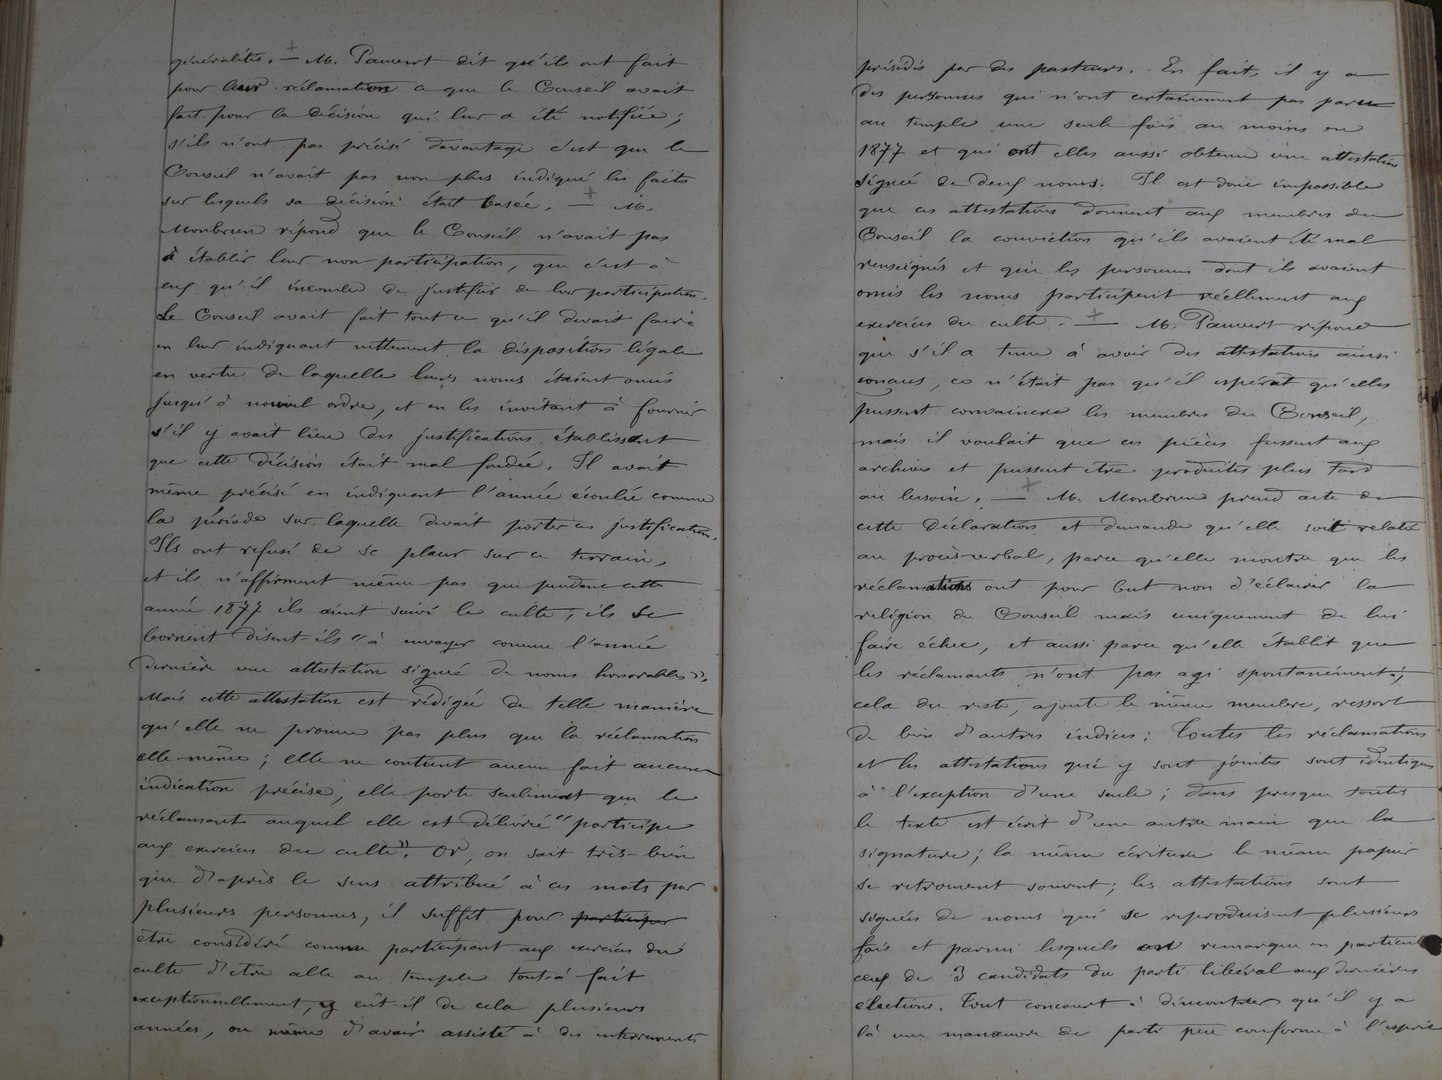 généralités. — M. Pauvert dit qu'ils ont fait
pour leur réclamation ce que le Conseil avait
fait pour la décision qui leur a été notifiée ;
s'ils n'ont pas précisé davantage c'est que le
Conseil n'avait pas non plus indiqué les faits
sur lesquels sa décision était basée. — M.
Monbrun répond que le Conseil n'avait pas
à établir leur non-participation, que c'est à
eux qu'il incombe de justifier de leur participation.
Le Conseil avait fait tout ce qu'il devait faire
en leur indiquant nettement la disposition légale
en vertu de laquelle leurs noms étaient omis
jusqu'à nouvel ordre, et en les invitant à fournir
s'il y avait lieu des justifications établissant
que cette décision était mal fondée. Il avait
même précisé en indiquant l'année écoulée comme
la période sur laquelle devait porter ces justifications.
Ils ont refusé de se placer sur ce terrain,
et ils n'affirment même pas que pendant cette
année 1877 ils aient suivi le culte ; ils se
bornent disent-ils "à envoyer comme l'année
dernière une attestation signée de noms honorables".
Mais cette attestation est rédigée de telle manière
qu'elle ne prouve pas plus que la réclamation
elle-même ; elle ne contient aucun fait aucune
indication précise, elle porte seulement que le
réclamant auquel elle est délivrée "participe
aux exercices du culte". Or, on sait très-bien
que d'après le sens attribué à ces mots par
plusieurs personnes, il suffit pour participer
être considéré comme participant aux exercices du
culte d'être allé au temple tout-à fait
exceptionnellement, y eût-il de cela plusieurs
années, ou même d'avoir assisté à des enterrements
présidés par des pasteurs. En fait, il y a
des personnes qui n'ont certainement pas paru
au temple une seule fois au moins en
1877 et qui ont elles aussi obtenu une attestation
signée de deux noms. Il est donc impossible
que ces attestations donnent aux membres du
Conseil la conviction qu'ils avaient été mal
renseignés et que les personnes dont ils avaient
omis les noms participent réellement aux
exercices du culte. — M. Pauvert répond
que s'il a tenu à avoir des attestations ainsi
conçues, ce n'était pas qu'il espérat qu'elles
pussent convaincre les membres du Conseil,
mais il voulait que ces pièces fussent aux
archives et pussent être produites plus tard
au besoin. — M. Monbrun prend acte de
cette déclaration et demande qu'elle soit relatée
au procès-verbal, parce qu'elle montre que les
réclamations ont pour but non d'éclairer la
religion du Conseil mais uniquement de lui
faire échec, et aussi parce qu'elle établit que
les réclamants n'ont pas agi spontanément ;
cela du reste, ajoute le même membre, ressort
de bien d'autres indices : Toutes les réclamations
et les attestations qui y sont jointes sont identiques
à l'exception d'une seule ; dans presque toutes
le texte est écrit d'une autre main que la
signature ; la même écriture le même papier
se retrouvent souvent ; les attestations sont
signées de noms qui se reproduisent plusieurs
fois et parmi lesquels on remarque en particulier
ceux de 3 candidats du parti libéral aux dernières
élections. Tout concourt à démontrer qu'il y a
là une manœuvre de parti peu conforme à l'esprit